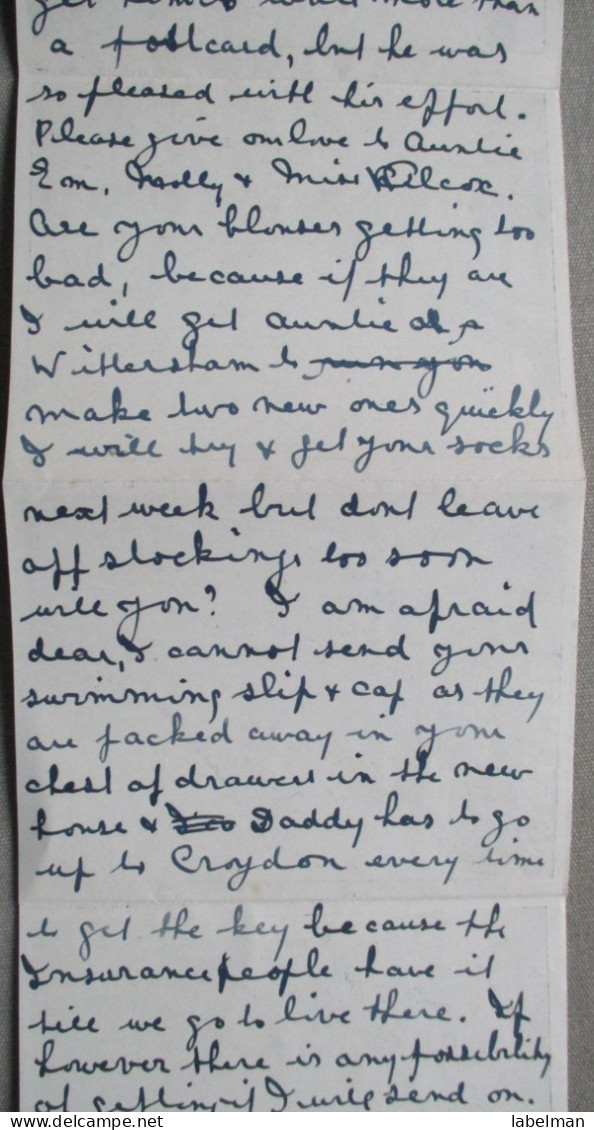 more than
a postcard, but he was
so pleased with his effort.
Please give our love to Auntie
Em, Molly & Miss Wilcox.
Are your blouses getting too
bad, because if they are
I will get auntie at
Wittersham to run you
make two new ones quickly
I will try & get your socks
next week but dont leave
off stockings too soon
will you? I am afraid
dear, I cannot send your
swimming slip & cap as they
are packed away in your
chest of drawers in the new
house & Daddy has to go
up to Croydon every time
to get the key because the
Insurance people have it
till we go to live there. If
however there is any possibility
of getting it I will send on.
labelman